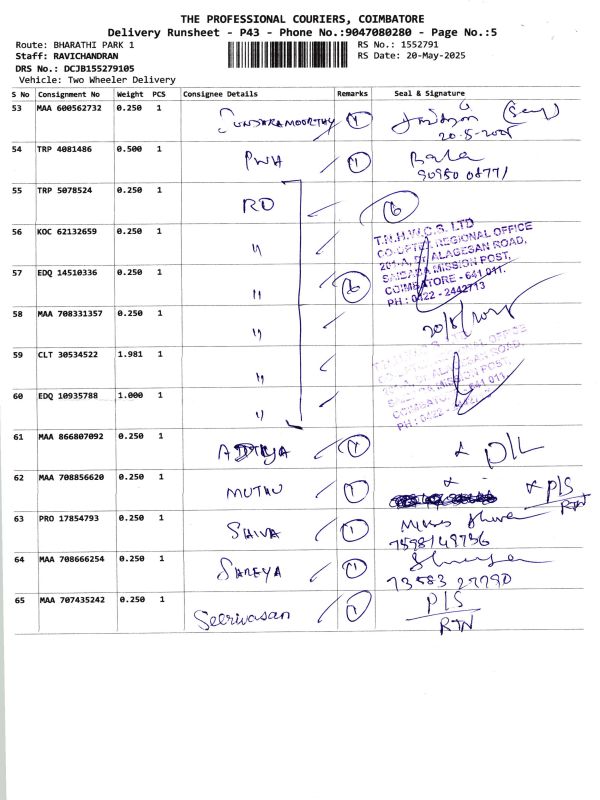 THE PROFESSIONAL COURIERS, COIMBATORE
Delivery Runsheet - P43 - Phone No.:9047080280 - Page No.:5
Route: BHARATHI PARK 1
Staff: RAVICHANDRAN
DRS No.: DCJB155279105
Vehicle: Two Wheeler Delivery
RS No.: 1552791
RS Date: 20-May-2025
S No Consignment No Weight PCS Consignee Details Remarks Seal & Signature
53 MAA 600562732 0.250 1 SUNDARAMOORTHY 1
20-5-2025
54 TRP 4081486 0.500 1 PWH 1 Bala
90950 08771
55 TRP 5078524 0.250 1 RD 6
56 KOC 62132659 0.250 1 "
T.N.H.W.C.S. LTD
CO-OPTEX REGIONAL OFFICE
201-A, Dr. ALAGESAN ROAD,
SAIBABA MISSION POST,
COIMBATORE - 641 011.
PH : 0422 - 2442713
57 EDQ 14510336 0.250 1 " 6
58 MAA 708331357 0.250 1 "
20/5/2025
59 CLT 30534522 1.981 1 "
60 EDQ 10935788 1.000 1 "
61 MAA 866807092 0.250 1 ADITHYA 1 D/L
62 MAA 708856620 0.250 1 MUTHU 1 P/S
RTN
63 PRO 17854793 0.250 1 SHIVA 1
7598149736
64 MAA 708666254 0.250 1 SAREYA 1
73583 27790
65 MAA 707435242 0.250 1 Seerivasan 1 P/S
RTN